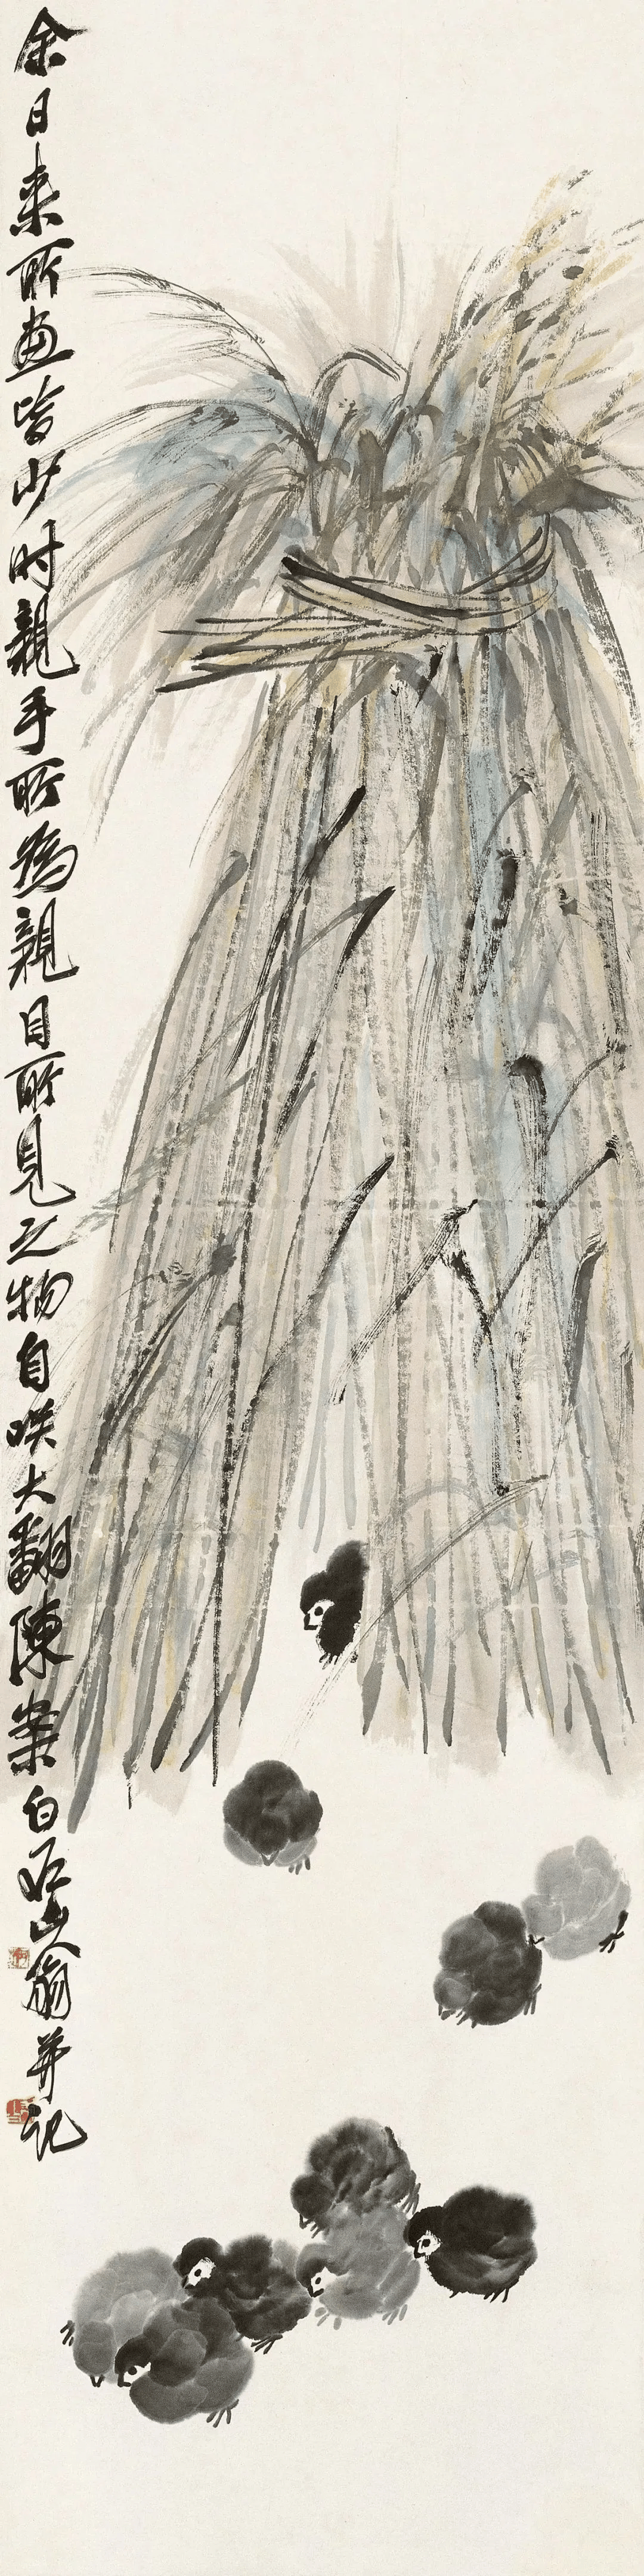 余日来所画皆少时亲手所为亲目所见之物自咲大翻陈案白石山翁并记